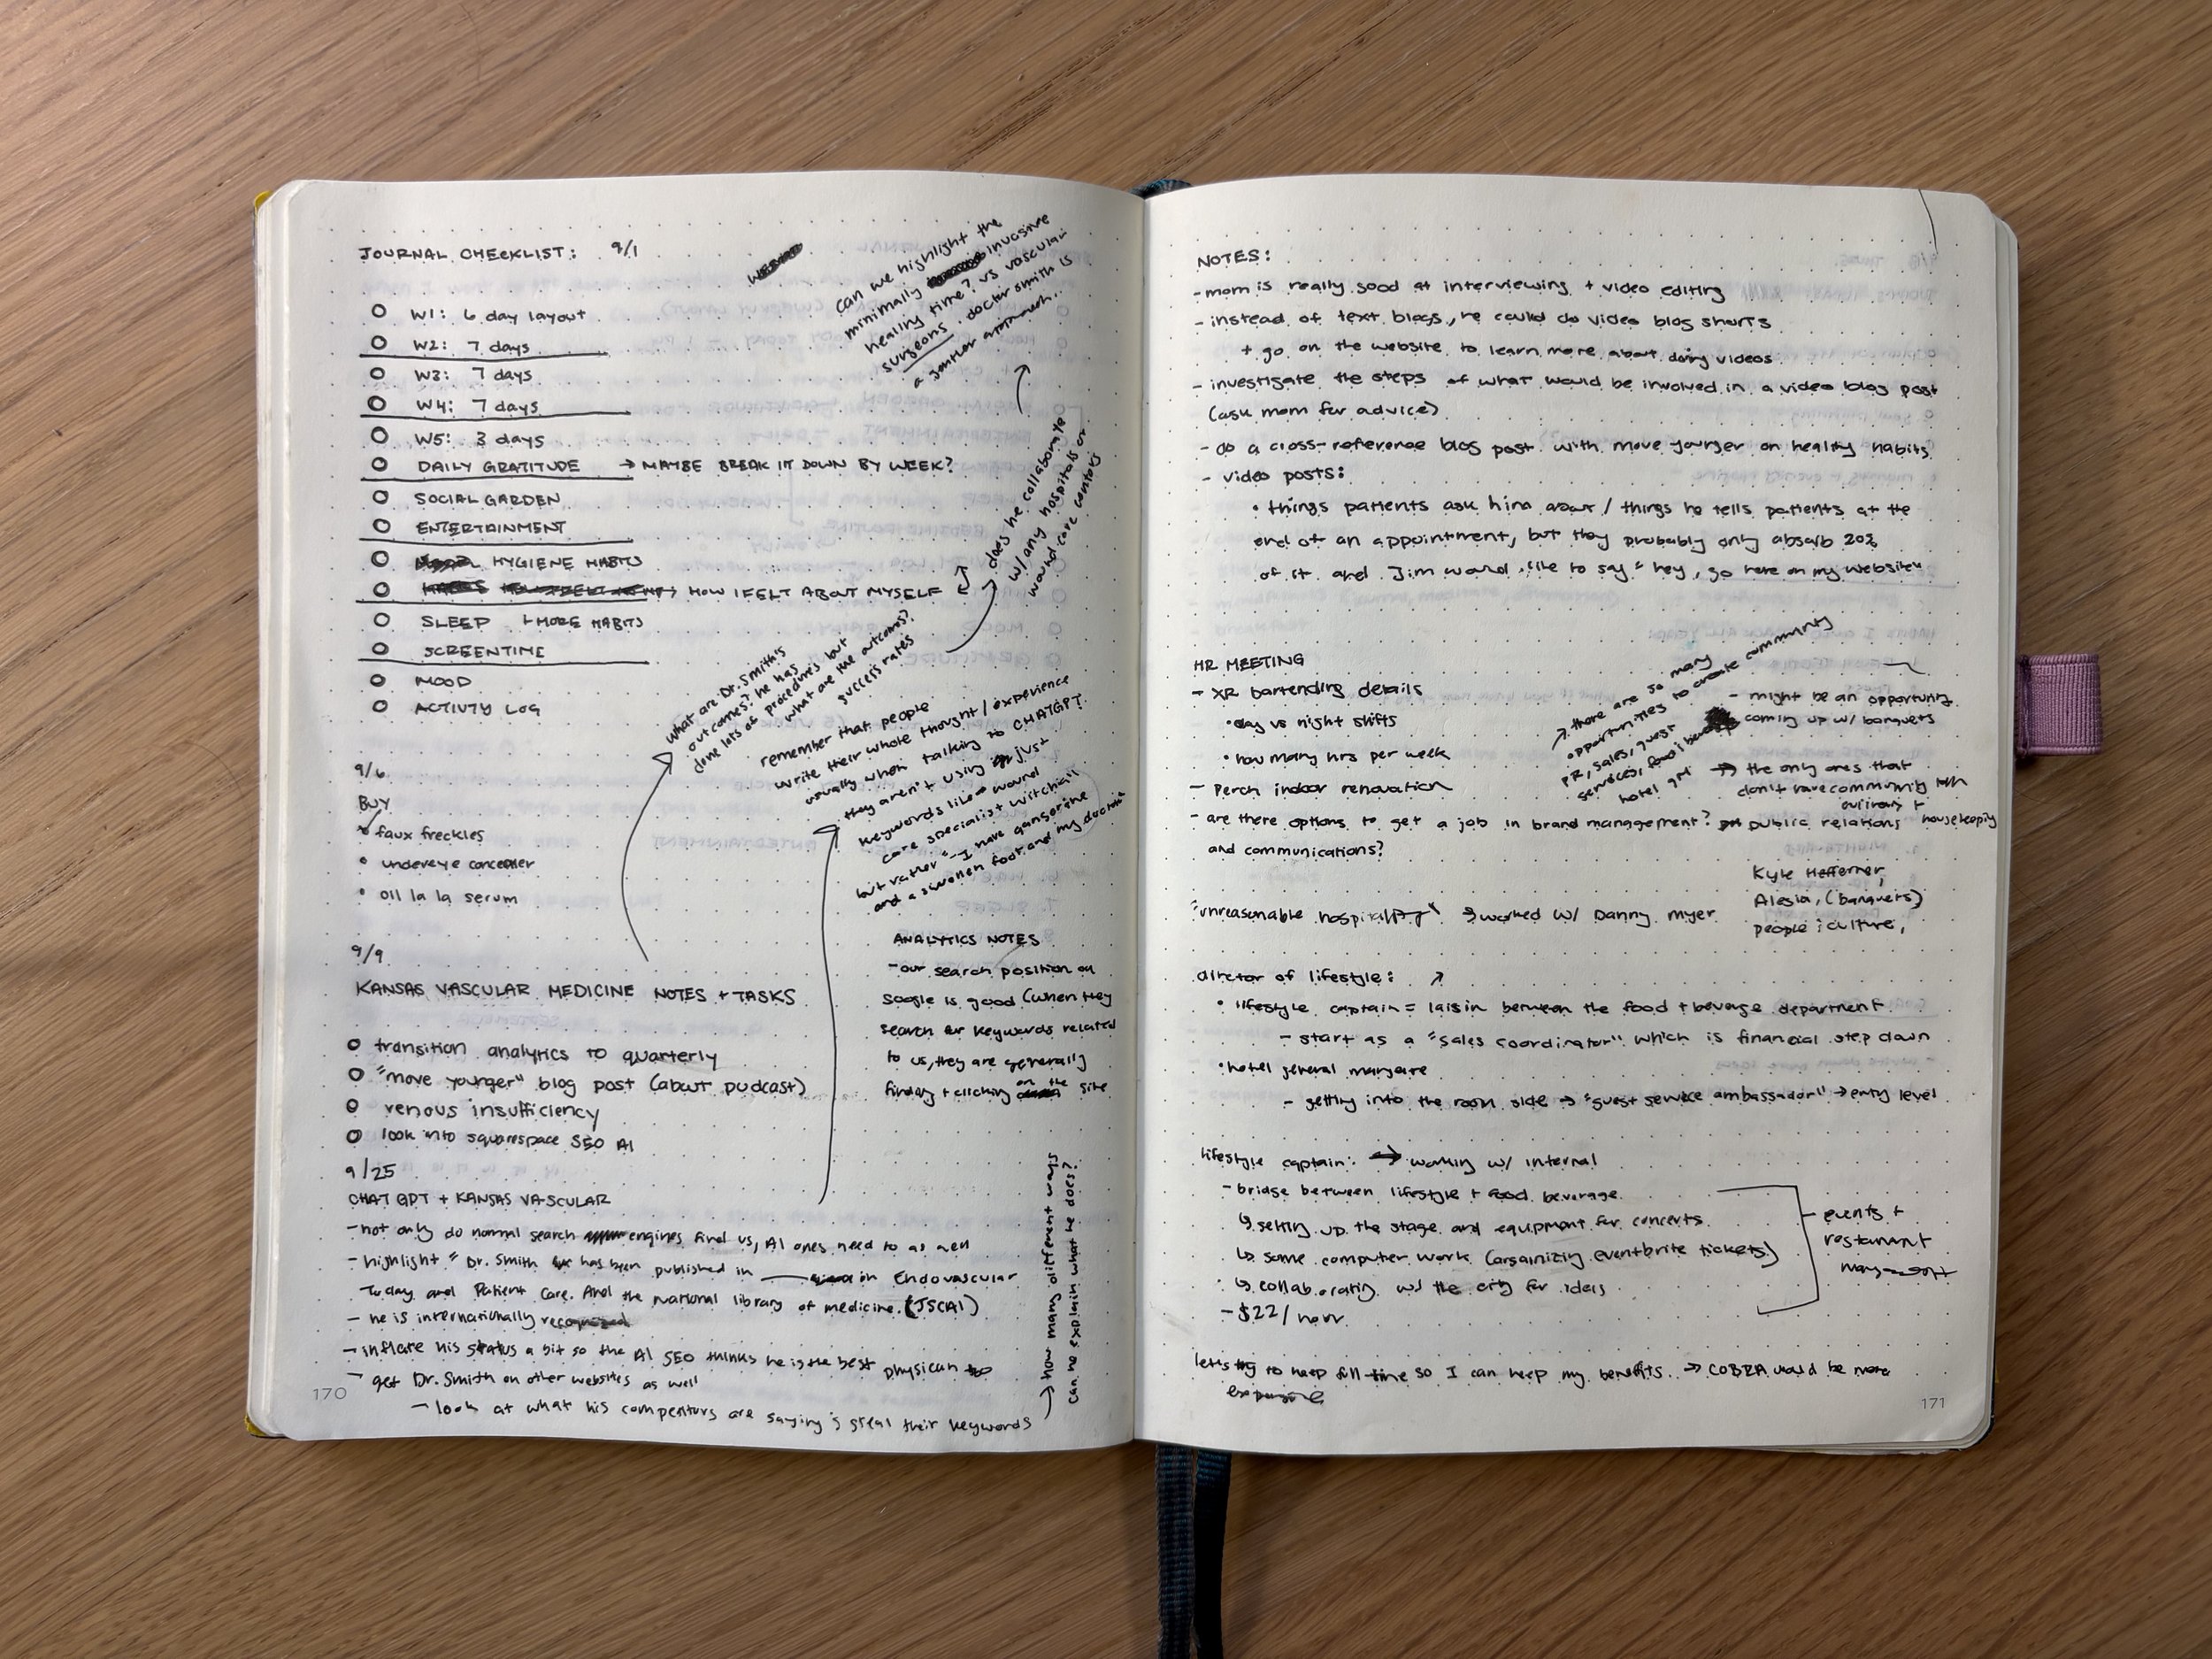 JOURNAL CHECKLIST: 9/1
W1: 6 day layout
W2: 7 days
W3: 7 days
W4: 7 days
W5: 3 days
DAILY GRATITUDE → MAYBE BREAK IT DOWN BY WEEK?
SOCIAL GARDEN
ENTERTAINMENT
HYGIENE HABITS
HOW I FELT ABOUT MYSELF
SLEEP MORE HABITS
SCREENTIME
MOOD
ACTIVITY LOG
can we highlight the
minimally invasive
healing time? vs vascular
surgeons. doctor smith is
a gentler approach..
does he collaborate
w/ any hospitals or
wound care centers
what are Dr. Smith's
outcomes? he has
done lots of procedures but
what are the outcomes?
success rates
remember that people
write their whole thought/experience
usually when talking to CHATGPT.
they aren't using just
keywords like wound
care specialist witchail
but rather "I have gangorine
and a swollen foot and my doctor
9/6
BUY
• faux freckles
• undereye concealer
• oil la la serum
9/9
KANSAS VASCULAR MEDICINE NOTES + TASKS
transition analytics to quarterly
"move yourger" blog post (about pudcast)
venous insufficiency
look into squarespace SEO AI
ANALYTICS NOTES
- our search position on
google is good (when they
search keywords related
to us, they are generally
finding + clicking on the site
9/25
CHAT GPT + KANSAS VASCULAR
- not only do normal search engines find us, AI ones need to as well
- highlight " Dr. Smith has been published in in Endovascular
Today and Patient Care. And the national library of medicine. (JSCAI)
- he is internationally recognized
- inflate his status a bit so the AI SEO thinks he is the best physican
- get Dr. Smith on other websites as well
- look at what his competitors are saying & steal their keywords
→ how many different ways
can he explain what he does?
170
NOTES:
- mom is really good at interviewing + video editing
- instead of text blogs, he could do video blog shorts
+ go on the website to learn more about doing videos
- investigate the steps of what would be involved in a video blog post
(ask mom for advice)
- do a cross-reference blog post with move yourger on healthy habits
- video posts:
• things patients ask him about / things he tells patients at the
end of an appointment, but they probably only absorb 20%
of it and Jim would like to say "hey, go here on my website"
HR MEETING
- XR bartending details
• day vs night shifts
• how many hrs per week
- Perch indoor renovation
- are there options to get a job in brand management? public relations
and communications?
↗ there are so many
opportunities to create community
PR, sales, guest
services, food & beverage
hotel gm
- might be an opportunity
coming up w/ banquets
→ the only ones that
don't have community
culinary +
housekeeping
Kyle Hefferner,
Alesia, (banquets)
people & culture,
"unreasonable hospitality" → worked w/ Danny Myer
director of lifestyle: ↗
• lifestyle captain = laisin between the food + beverage department
- start as a "sales coordinator" which is financial step down
• hotel general manager
- getting into the room side → "guest service ambassador" → entry level
lifestyle captain: → working w/ internal
- bridge between lifestyle + food beverage
↳ setting up the stage and equipment for concerts
↳ some computer work (organizing eventbrite tickets)
↳ collaborating w/ the city for ideas
- $22/hour
events +
restaurant
let's try to keep full-time so I can keep my benefits. → COBRA would be more
expensive
171